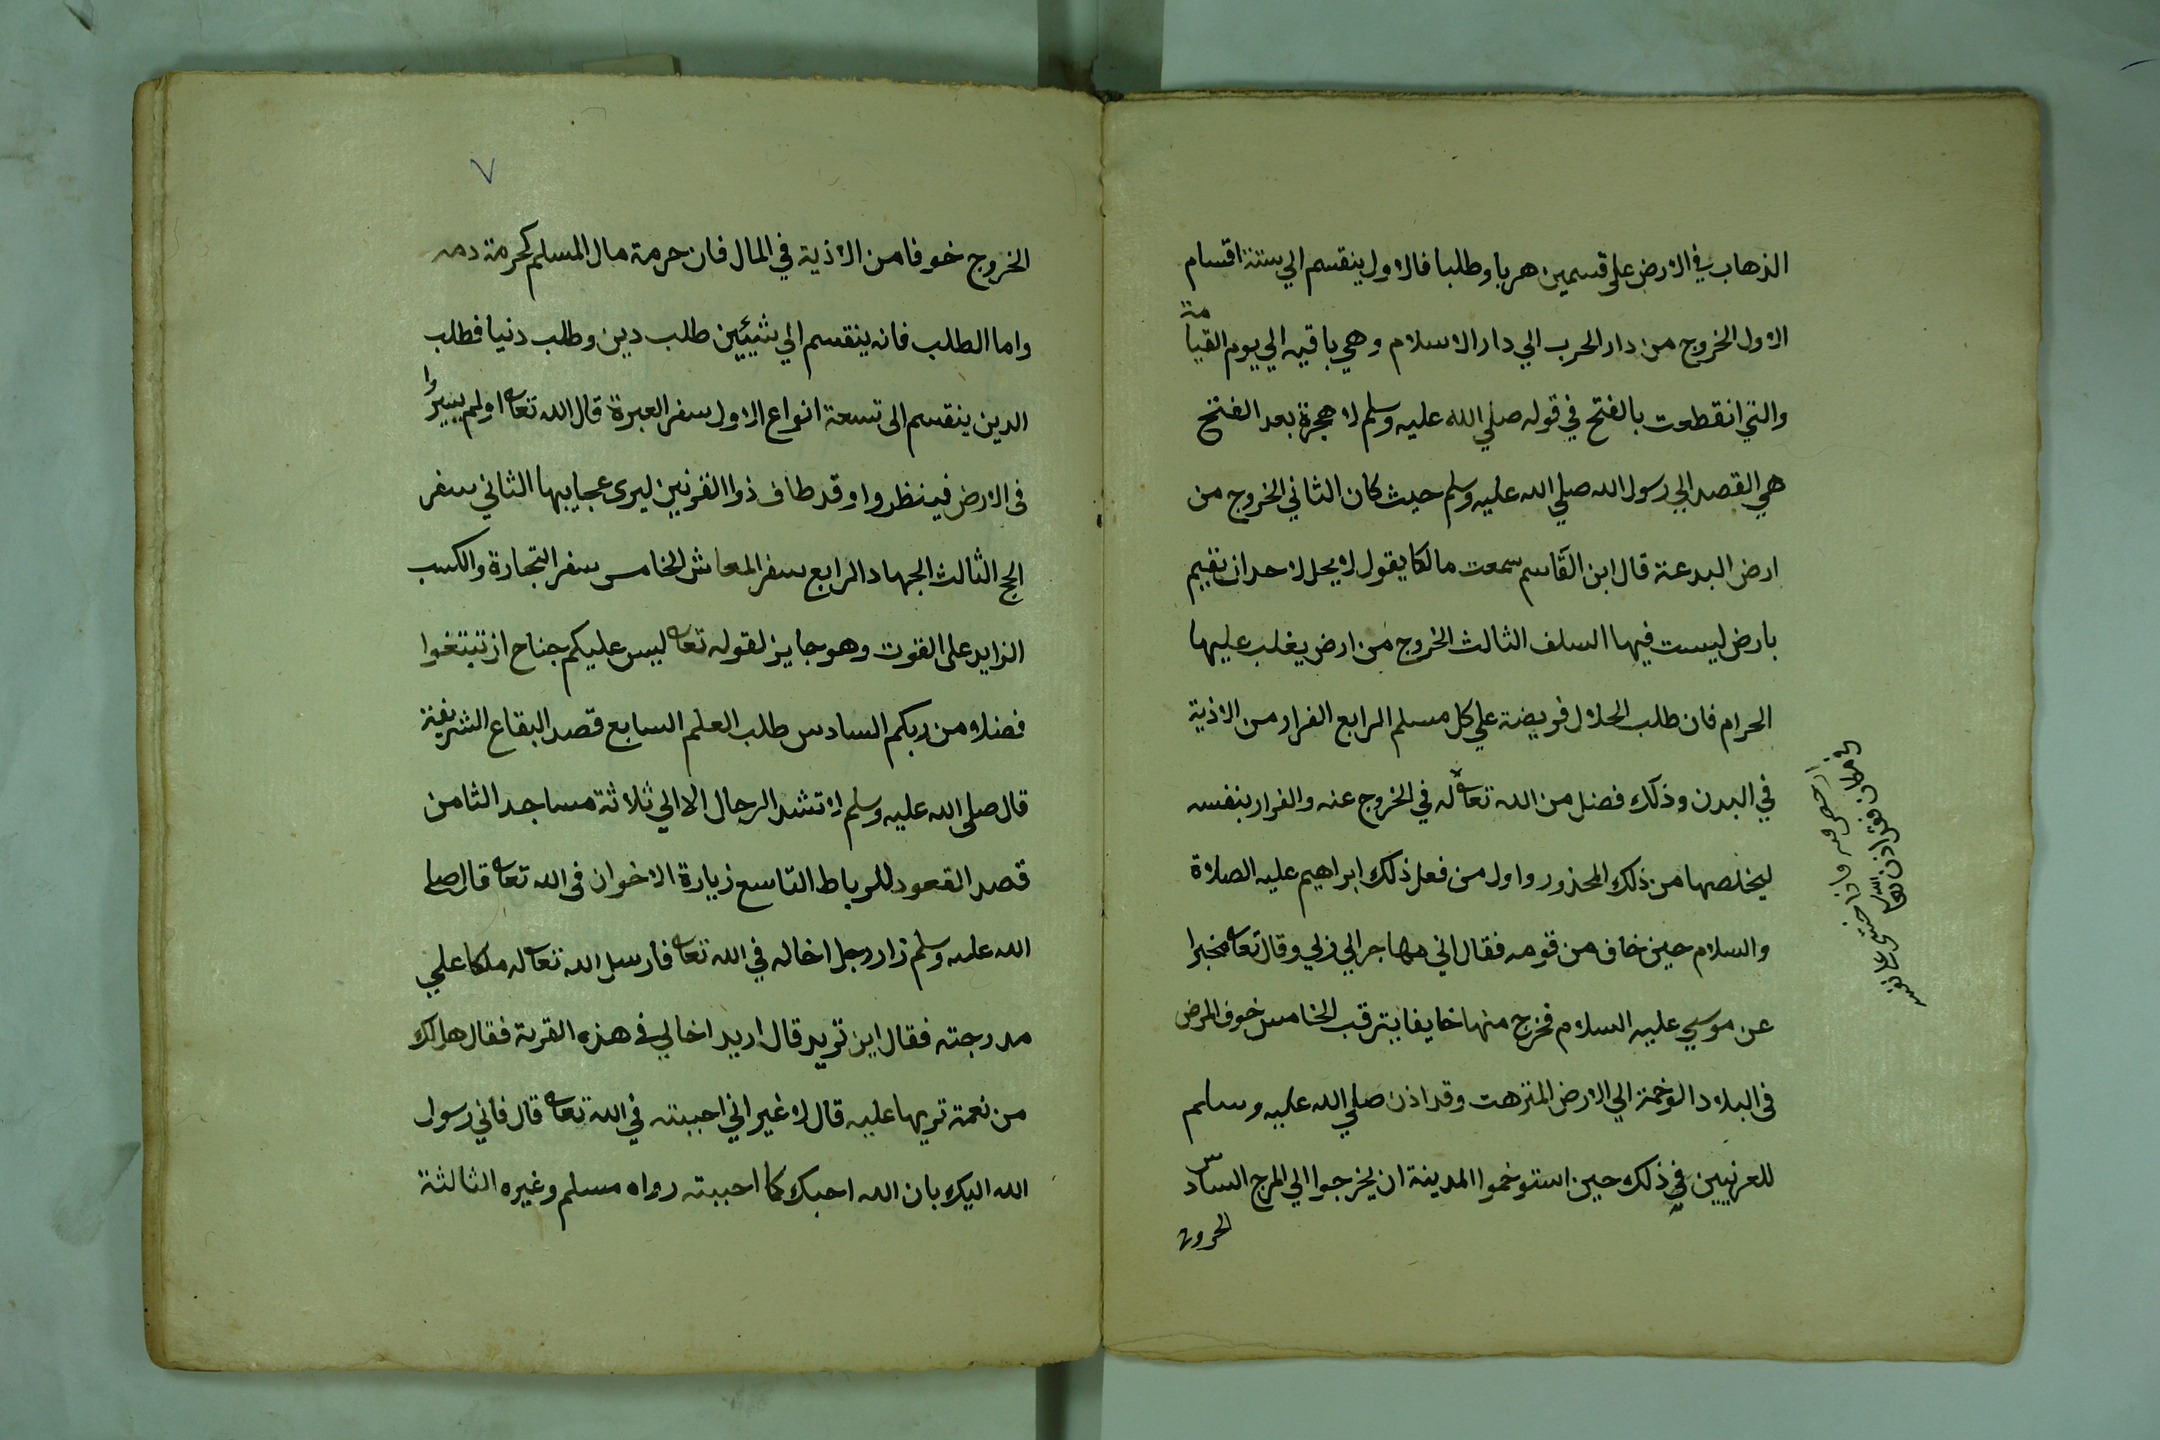 الذهاب في الارض على قسمين هربا وطلبا فالاول ينقسم الي ستة اقسام
الاول الخروج من دار الحرب الي دار الاسلام وهي باقيه الي يوم القيامة
والتي انقطعت بالفتح في قوله صلي الله عليه وسلم لا هجرة بعد الفتح
هي القصد الي رسول الله صلي الله عليه وسلم حيث كان الثاني الخروج من
ارض البدعة قال ابن القاسم سمعت مالكا يقول لا يحل لاحد ان يقيم
بارض ليست فيها السلف الثالث الخروج من ارض يغلب عليها
الحرام فان طلب الحلال فريضة علي كل مسلم الرابع الفرار من الاذية
في البدن وذلك فضل من الله تعاله في الخروج عنه والفرار بنفسه
ليخلصها من ذلك المحذور واول من فعل ذلك ابراهيم عليه الصلاة
والسلام حين خاف من قومه فقال اني مهاجر الي ربي وقال تعا مخبرا
عن موسي عليه السلام فخرج منها خايفا يترقب الخامس خوف المرض
في البلاد الوخمة الي الارض المنزهت وقد اذن صلي الله عليه وسلم
للعرنيين في ذلك حين استوخموا المدينة ان يخرجوا الي المرج السادس
الخروج
فاذا خشي علي نفس
٧
الخروج خوفا من الاذية في المال فان حرمة مال المسلم كحرمة دمه
واما الطلب فانه ينقسم الي شيئين طلب دين وطلب دنيا فطلب
الدين ينقسم الى تسعة انواع الاول سفر العبرة قال الله تعا اولم يسيروا
في الارض فينظروا وقد طاف ذوا القرنين ليرى عجايبها الثاني سفر
الحج الثالث الجهاد الرابع سفر المعاش الخامس سفر التجارة والكسب
الزايد على القوت وهو جايز لقوله تعا ليس عليكم جناح ان تبتغوا
فضلا من ربكم السادس طلب العلم السابع قصد البقاع الشريفة
قال صلى الله عليه وسلم لا تشد الرحال الا الي ثلاثة مساجد الثامن
قصد القعود للرباط التاسع زيارة الاخوان في الله تعا قال صلى
الله عليه وسلم زار رجل اخا له في الله تعا فارسل الله تعاله ملكا علي
مدرجته فقال اين تريد قال اريد اخا لي في هذه القرية فقال هل لك
من نعمة تربها عليه قال لا غير اني احببته في الله تعا قال فاني رسول
الله اليك بان الله احبك كما احببته رواه مسلم وغيره الثالثة